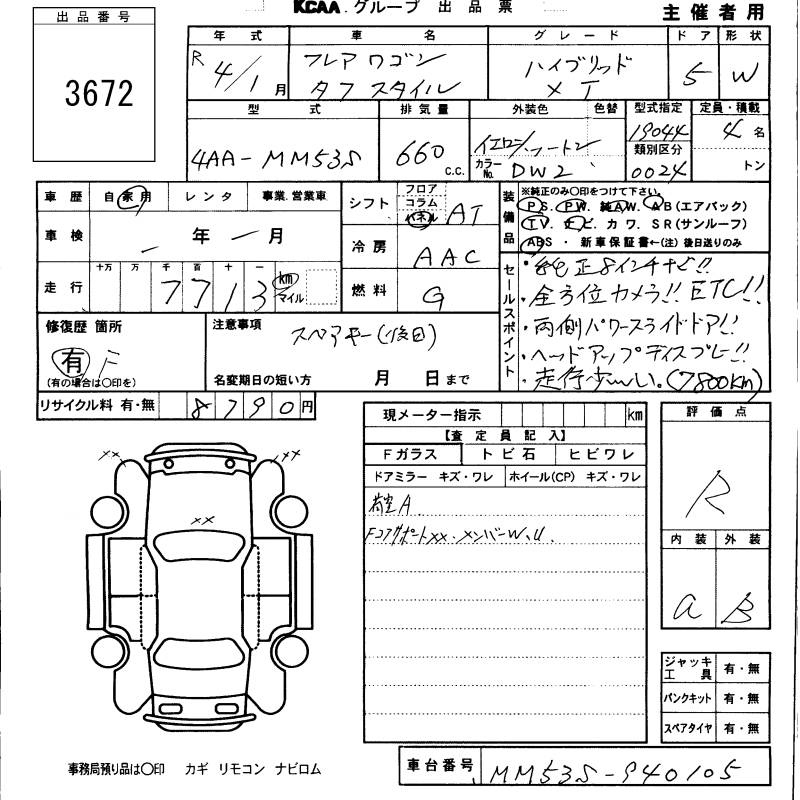 出品番号
3672
KCAA グループ 出品票
主催者用
年式 車名 グレード ドア 形状
R 4/1月 フレアワゴン タフスタイル ハイブリッド XT 5 W
型式 排気量 外装色 色替 型式指定 定員・積載
4AA-MM53S 660 c.c. カラーNo. DW2 19044 4名
類別区分 0024 トン
車歴 自家用 レンタ 事業.営業車
車検 - 年 - 月
走行 十万 万 千 百 十 一 7713 km マイル
シフト フロア コラム パネル AT
冷房 AAC
燃料 G
装備品 ※純正のみ〇印をつけて下さい。
P S. P W. 純A W. A B(エアバック)
T V. ナ ビ. カ ワ. S R(サンルーフ)
A B S ・ 新車保証書←(注) 後日送りのみ
セールスポイント
・純正8インチナビ!!
・全方位カメラ!! ETC!!
・両側パワースライドドア!!
・ヘッドアップディスプレー!!
・走行少ない。(7800km)
修復歴 箇所
有 F
(有の場合は〇印を)
注意事項
スペアキー(後日)
名変期日の短い方 月 日まで
リサイクル料 有・無 8790円
現メーター指示 km
【査定員記入】
Fガラス トビ石 ヒビワレ
ドアミラー キズ・ワレ ホイール(CP) キズ・ワレ
荷室A
Fコアサポートxx・メンバーW、U
評価点
R
内装 外装
a B
xx xx
xx
ジャッキ工具 有・無
パンクキット 有・無
スペアタイヤ 有・無
事務局預り品は〇印 カギ リモコン ナビロム
車台番号 MM53S-940105